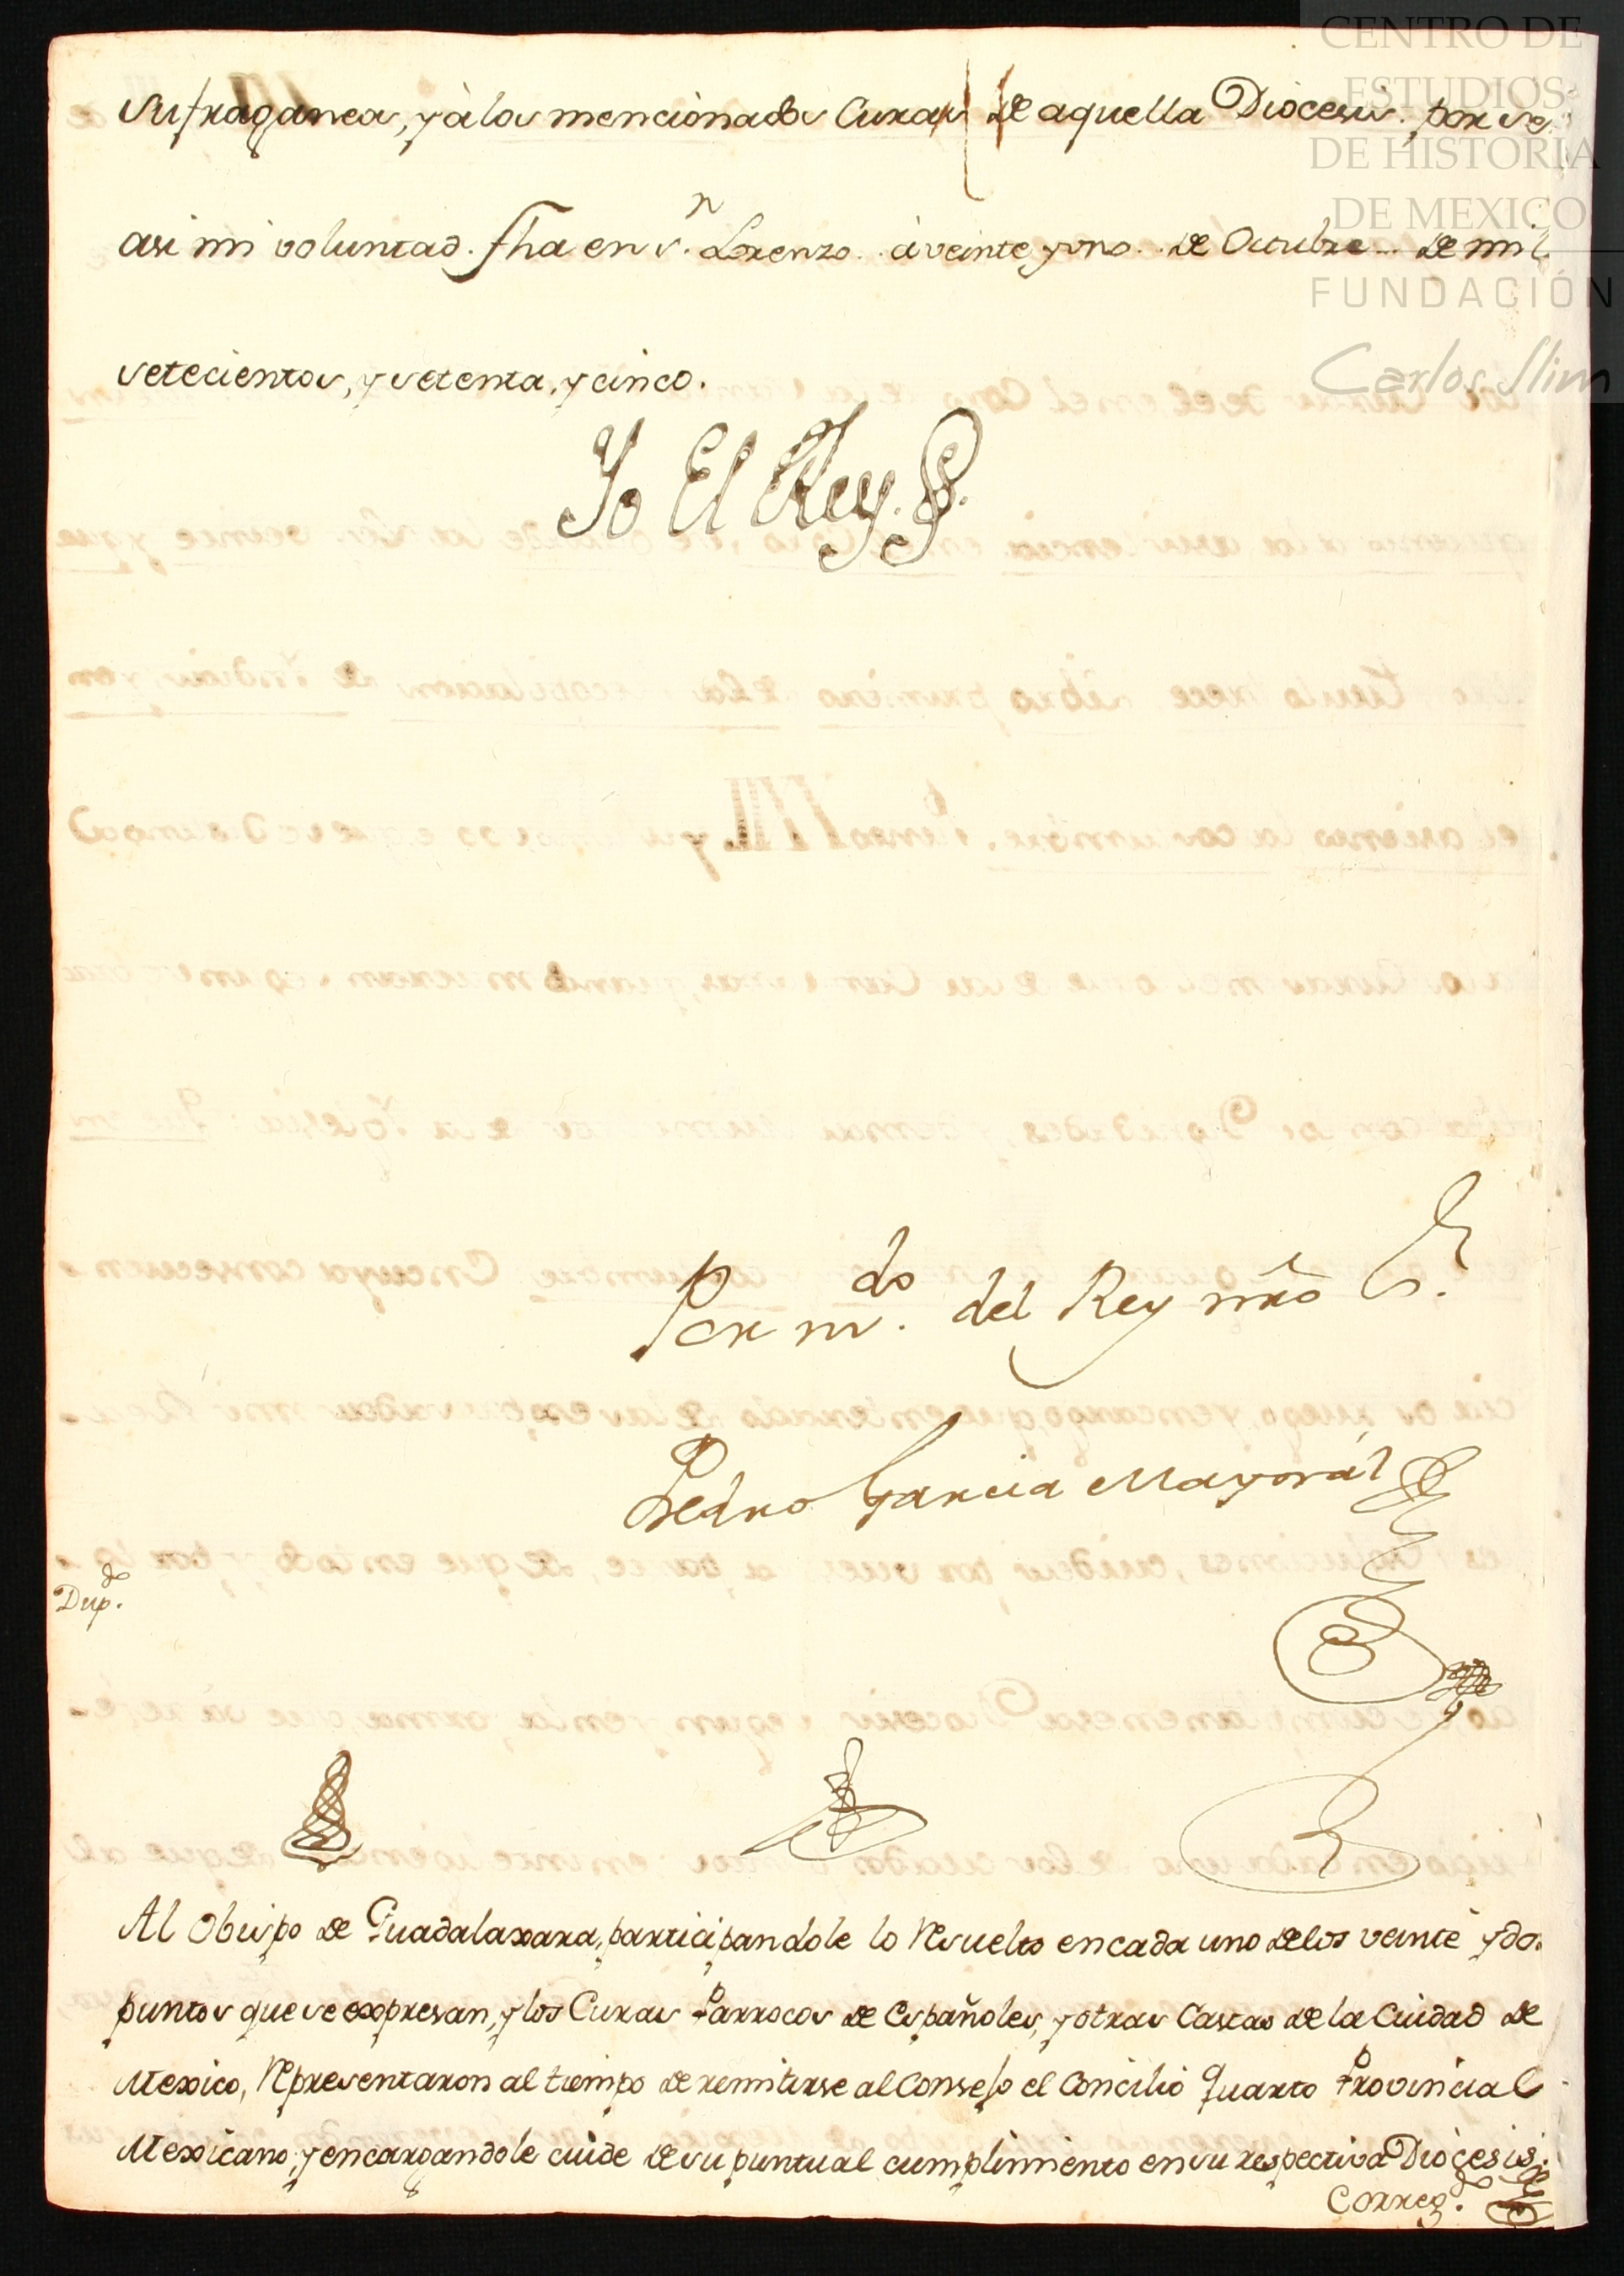 CENTRO DE
ESTUDIOS
DE HISTORIA
DE MEXICO
FUNDACIÓN
Carlos Slim
Sufraganea, y à los mencionados Curas de aquella Diocesis. por ser
asi mi voluntad. fha en S.n Lorenzo. à veinte y uno. de Octubre... de mil
setecientos, y setenta, y cinco.
Yo El Rey.
Por m.do del Rey nr̃o S.r
Pedro Garcia Mayorál
Dup.do
Al Obispo de Guadalaxara, participandole lo Resuelto en cada uno de los veinte y dos
puntos que se expresan, y los Curas Parrocos de Españoles, y otras Castas de la Ciudad de
Mexico, Representaron al tiempo de remitirse al Consejo el Concilio Quarto Provincial
Mexicano, y encargandole cuide de su puntual cumplimiento en su respectiva Diocesis.
Correg.do